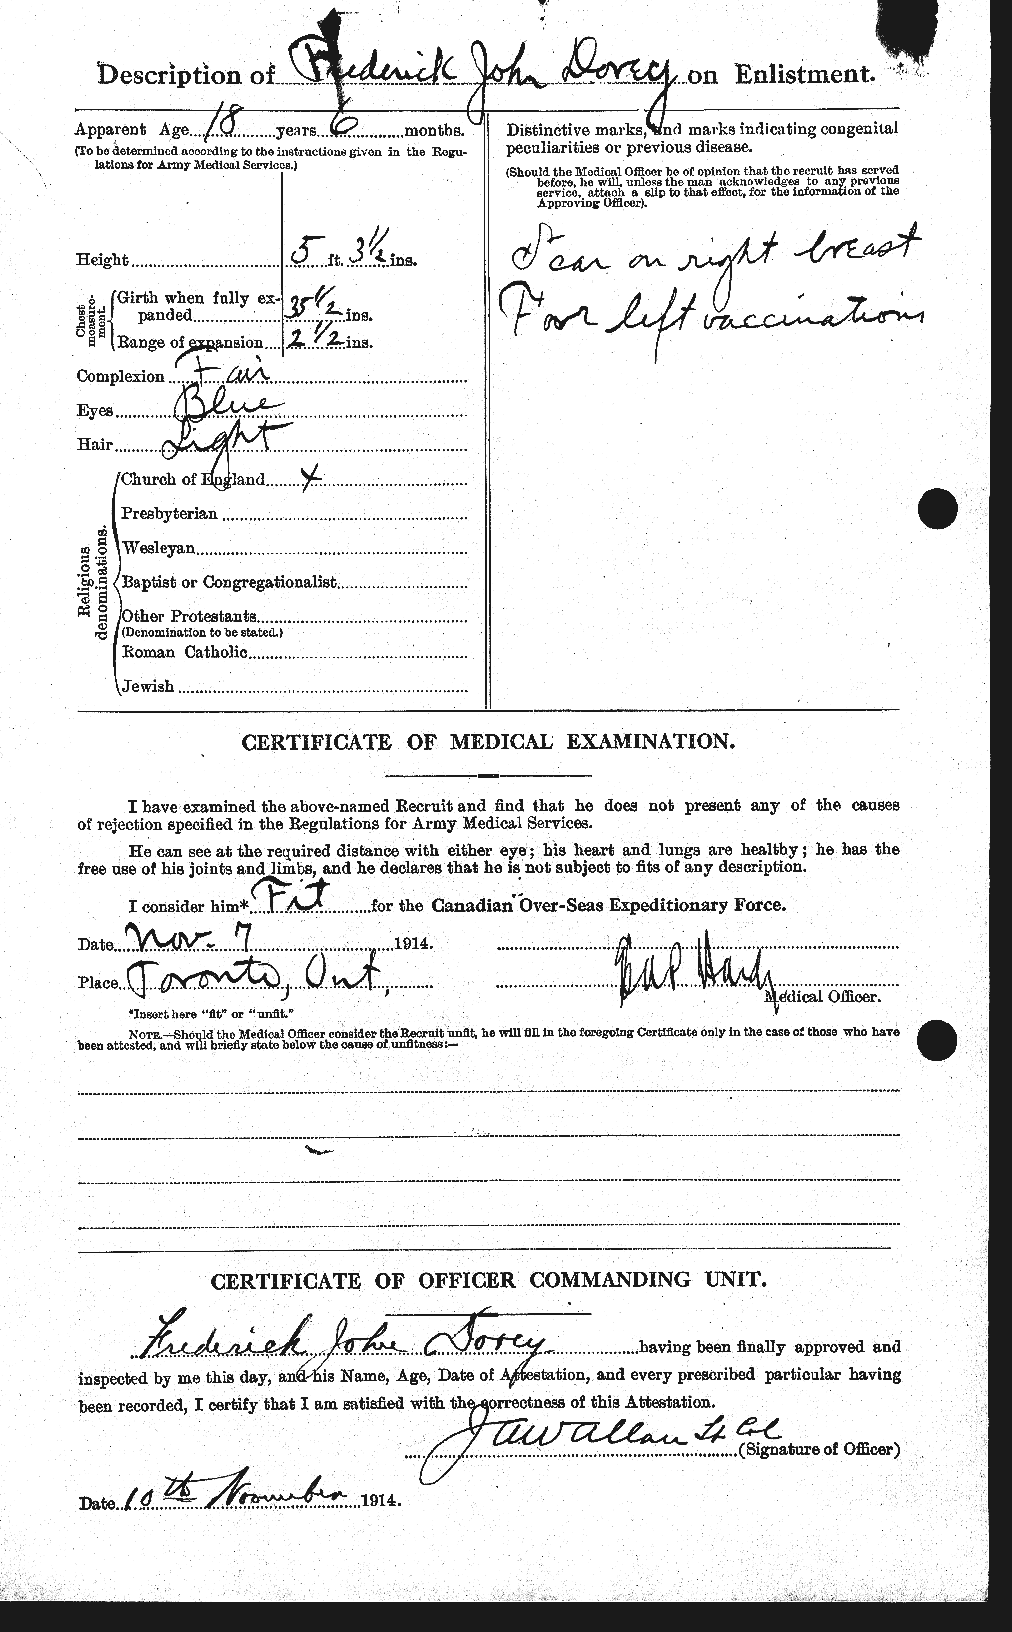 Description of Frederick John Dorey on Enlistment.
Apparent Age 18 years 6 months.
(To be determined according to the instructions given in the Regu-
lations for Army Medical Services.)
Height 5 ft. 3½ ins.
Chest measure-ment.
Girth when fully ex-
panded 35 1/2 ins.
Range of expansion 2 1/2 ins.
Complexion Fair
Eyes Blue
Hair Light
Religious denominations.
Church of England x
Presbyterian
Wesleyan
Baptist or Congregationalist
Other Protestants
(Denomination to be stated.)
Roman Catholic
Jewish
Distinctive marks, and marks indicating congenital
peculiarities or previous disease.
(Should the Medical Officer be of opinion that the recruit has served
before, he will, unless the man acknowledges to any previous
service, attach a slip to that effect, for the information of the
Approving Officer).
Scar on right breast
Four left vaccinations
CERTIFICATE OF MEDICAL EXAMINATION.
I have examined the above-named Recruit and find that he does not present any of the causes
of rejection specified in the Regulations for Army Medical Services.
He can see at the required distance with either eye; his heart and lungs are healthy; he has the
free use of his joints and limbs, and he declares that he is not subject to fits of any description.
I consider him* Fit for the Canadian Over-Seas Expeditionary Force.
Date Nov. 7 1914.
Place Toronto, Ont.
Medical Officer.
*Insert here "fit" or "unfit."
NOTE.—Should the Medical Officer consider the Recruit unfit, he will fill in the foregoing Certificate only in the case of those who have
been attested, and will briefly state below the cause of unfitness:—
CERTIFICATE OF OFFICER COMMANDING UNIT.
Frederick John Dorey having been finally approved and
inspected by me this day, and his Name, Age, Date of Attestation, and every prescribed particular having
been recorded, I certify that I am satisfied with the correctness of this Attestation.
J A W Allan Lt Col
(Signature of Officer)
Date 10th November 1914.